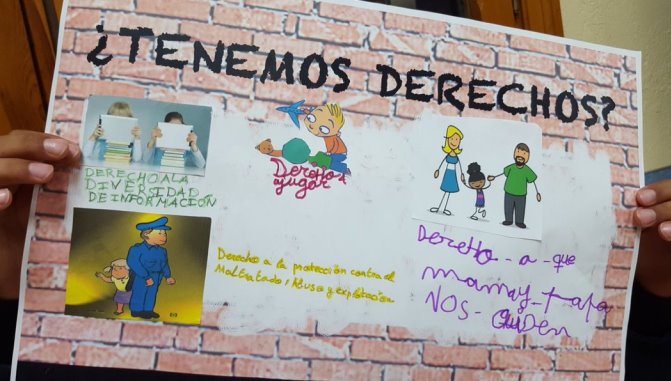 ¿TENEMOS DERECHOS?
DERECHO ALA
DIVERSIDAD
DE INFORMACIÓN
Derecho a
jugar
Derecho a la protección contra el
Maltratado, Abuso y explotación
Derecho - a - que
mamá y - papá
NOS - cuiden